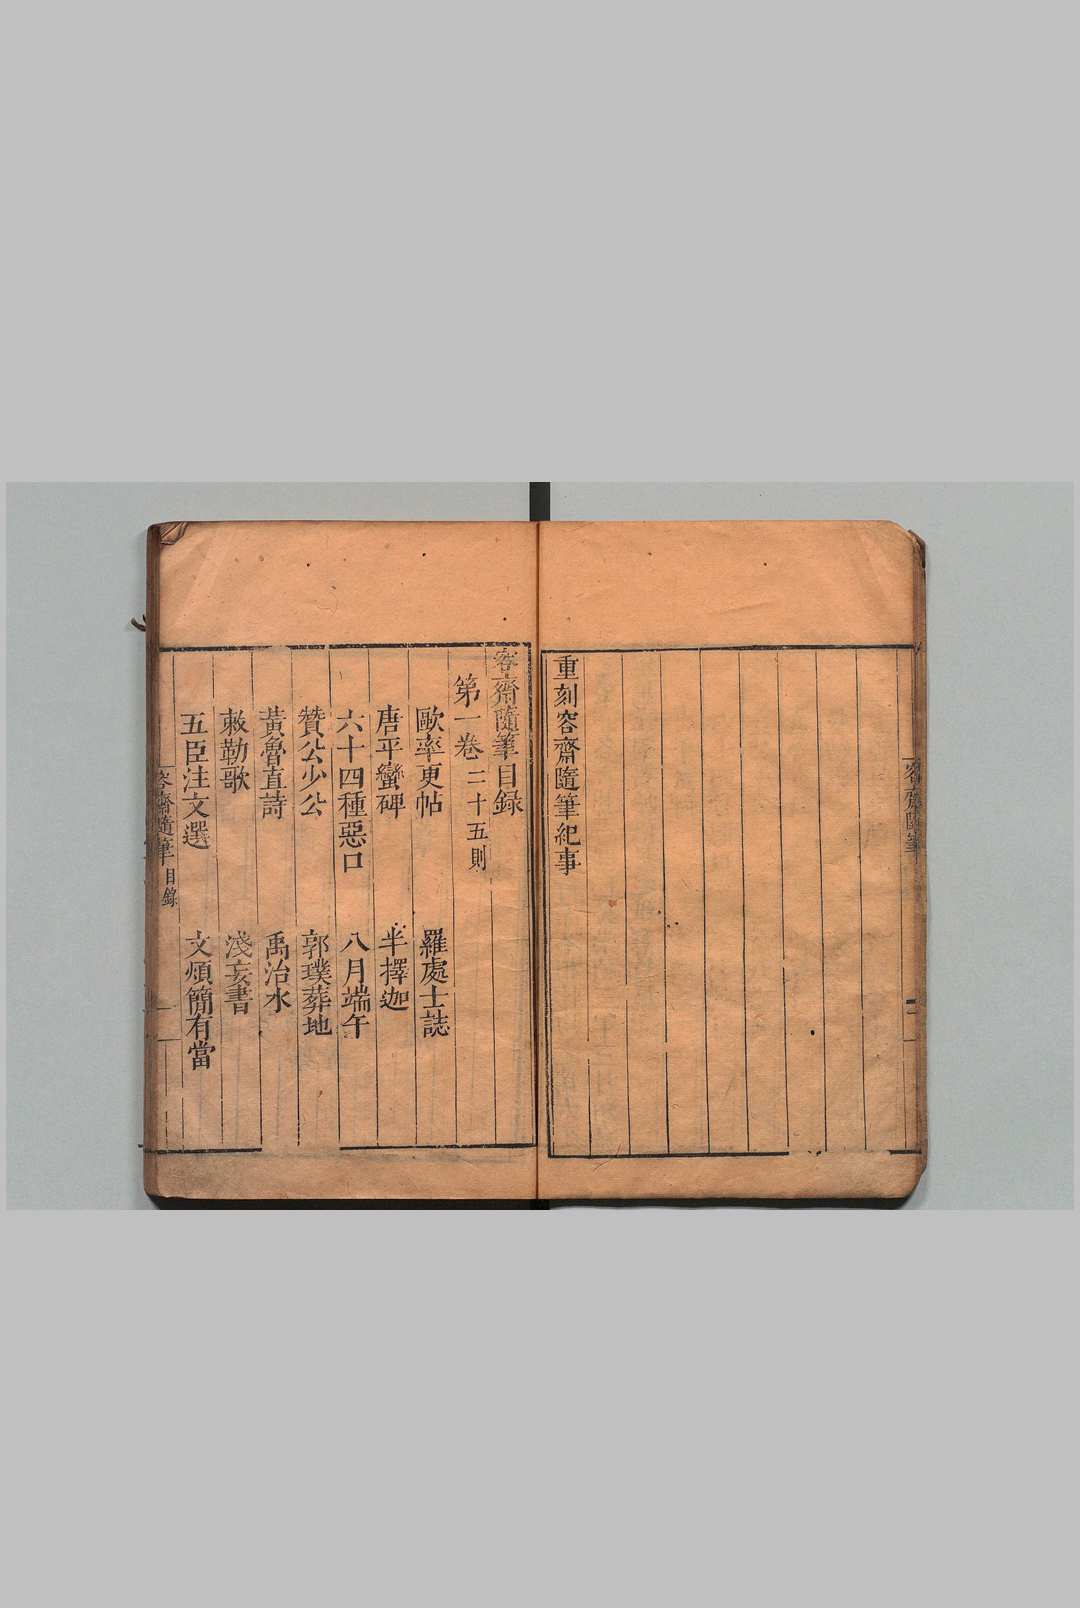 容齋隨筆
重刻容齋隨筆紀事
容齋隨筆目録
第一卷 二十五則
歐率更帖 羅處士誌
唐平蠻碑 半擇迦
六十四種惡口 八月端午
贊公少公 郭璞葬地
黃魯直詩 禹治水
敕勒歌 淺妄書
五臣注文選 文煩簡有當
容齋隨筆 目錄